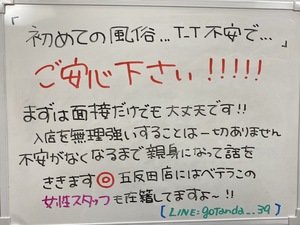 「
初めての風俗...T_T 不安で...」
ご安心下さい!!!!!
まずは面接だけでも大丈夫です!!
入店を無理強いすることは一切ありません
不安がなくなるまで親身になって話を
ききます◎五反田店にはベテラこの
女性スタッフも在籍してますよ〜!!
[LINE:gotanda__39]